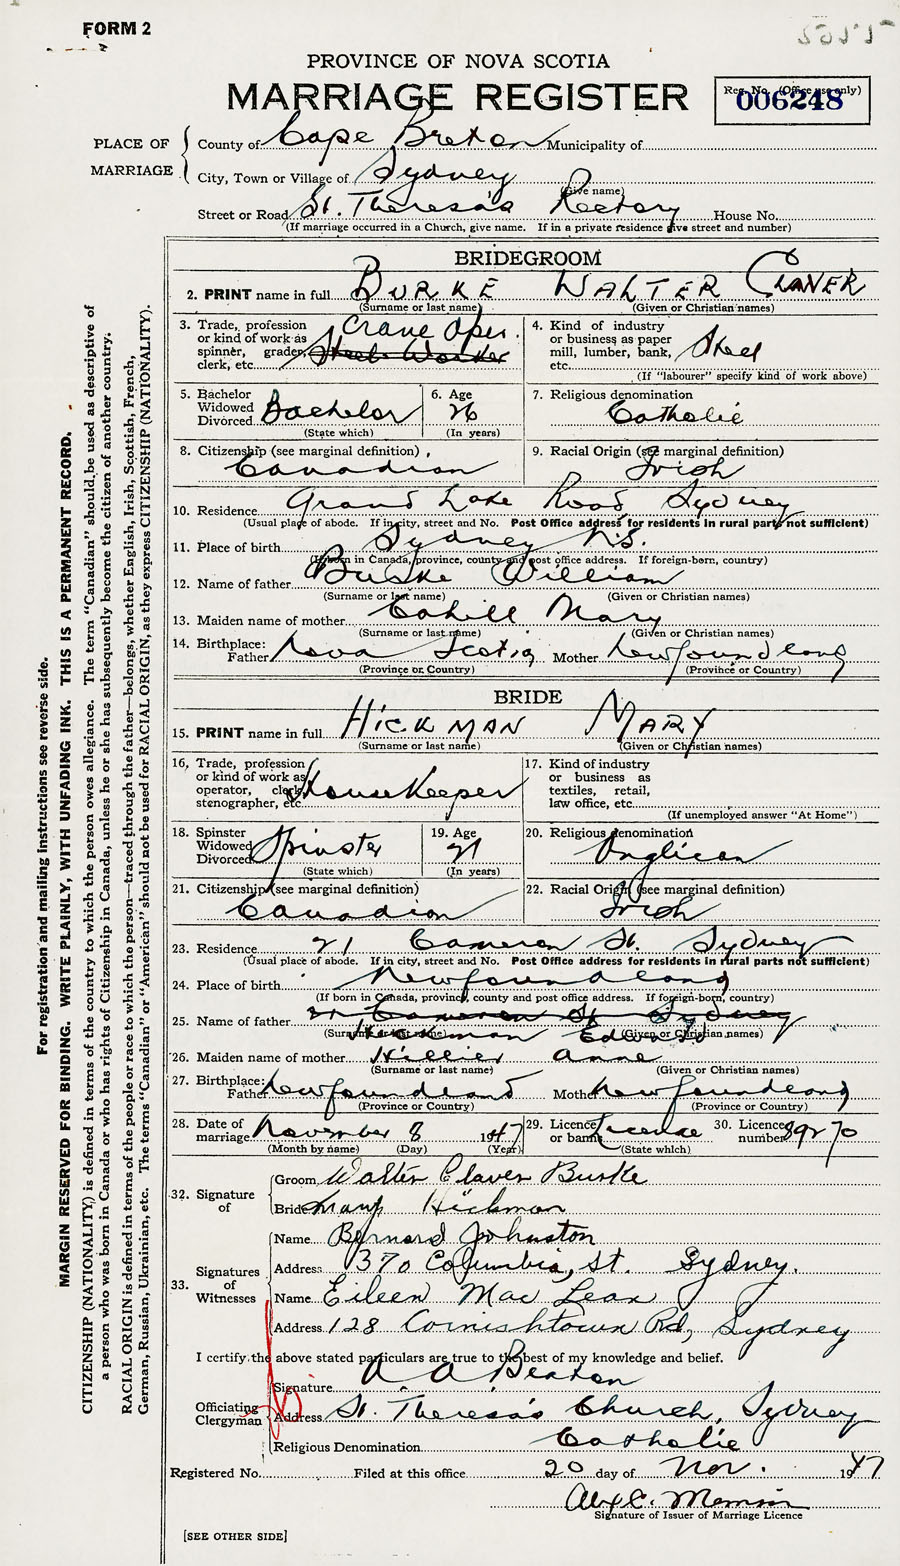 FORM 2
PROVINCE OF NOVA SCOTIA
MARRIAGE REGISTER
Reg. No. (Office use only)
006248
PLACE OF MARRIAGE
County of Cape Breton Municipality of
City, Town or Village of Sydney
(Give name)
Street or Road St. Theresa's Rectory House No.
(If marriage occurred in a Church, give name. If in a private residence give street and number)
BRIDEGROOM
2. PRINT name in full BURKE WALTER CLAVER
(Surname or last name) (Given or Christian names)
3. Trade, profession or kind of work as spinner, grader, clerk, etc. Crane Oper. Steel Worker
4. Kind of industry or business as paper mill, lumber, bank, etc. Steel
(If "labourer" specify kind of work above)
5. Bachelor Widowed Divorced Bachelor
(State which)
6. Age 26
(In years)
7. Religious denomination
Catholic
8. Citizenship (see marginal definition)
Canadian
9. Racial Origin (see marginal definition)
Irish
10. Residence Grand Lake Road Sydney
(Usual place of abode. If in city, street and No. Post Office address for residents in rural parts not sufficient)
11. Place of birth Sydney N.S.
(If born in Canada, province, county and post office address. If foreign-born, country)
12. Name of father Burke William
(Surname or last name) (Given or Christian names)
13. Maiden name of mother Cahill Mary
(Surname or last name) (Given or Christian names)
14. Birthplace: Father Nova Scotia Mother Newfoundland
(Province or Country) (Province or Country)
BRIDE
15. PRINT name in full HICKMAN MARY
(Surname or last name) (Given or Christian names)
16. Trade, profession or kind of work as operator, clerk, stenographer, etc. Housekeeper
17. Kind of industry or business as textiles, retail, law office, etc.
(If unemployed answer "At Home")
18. Spinster Widowed Divorced Spinster
(State which)
19. Age 21
(In years)
20. Religious denomination
Anglican
21. Citizenship (see marginal definition)
Canadian
22. Racial Origin (see marginal definition)
Irish
23. Residence 21 Cameron St. Sydney
(Usual place of abode. If in city, street and No. Post Office address for residents in rural parts not sufficient)
24. Place of birth Newfoundland
(If born in Canada, province, county and post office address. If foreign-born, country)
25. Name of father 21 Cameron St Sydney
(Surname or last name) (Given or Christian names)
Hickman
26. Maiden name of mother Hillier Anne
(Surname or last name) (Given or Christian names)
27. Birthplace: Father Newfoundland Mother Newfoundland
(Province or Country) (Province or Country)
28. Date of marriage November 8 1947
(Month by name) (Day) (Year)
29. Licence or banns License
(State which)
30. Licence number 89270
32. Signature of
Groom Walter Claver Burke
Bride Mary Hickman
33. Signatures of Witnesses
Name Bernard Johnston
Address 370 Columbia, St. Sydney.
Name Eileen Mac Lean
Address 128 Cornishtown Rd, Sydney
I certify the above stated particulars are true to the best of my knowledge and belief.
Officiating Clergyman
Signature A A Beaton
Address St. Theresa's Church, Sydney
Religious Denomination Catholic
Registered No. Filed at this office 20 day of Nov. 1947
Signature of Issuer of Marriage Licence
[SEE OTHER SIDE]
For registration and mailing instructions see reverse side.
MARGIN RESERVED FOR BINDING. WRITE PLAINLY, WITH UNFADING INK. THIS IS A PERMANENT RECORD.
CITIZENSHIP (NATIONALITY) is defined in terms of the country to which the person owes allegiance. The term "Canadian" should be used as descriptive of
a person who was born in Canada or who has rights of Citizenship in Canada, unless he or she has subsequently become the citizen of another country.
RACIAL ORIGIN is defined in terms of the people or race to which the person—traced through the father—belongs, whether English, Irish, Scottish, French,
German, Russian, Ukrainian, etc. The terms "Canadian" or "American" should not be used for RACIAL ORIGIN, as they express CITIZENSHIP (NATIONALITY).